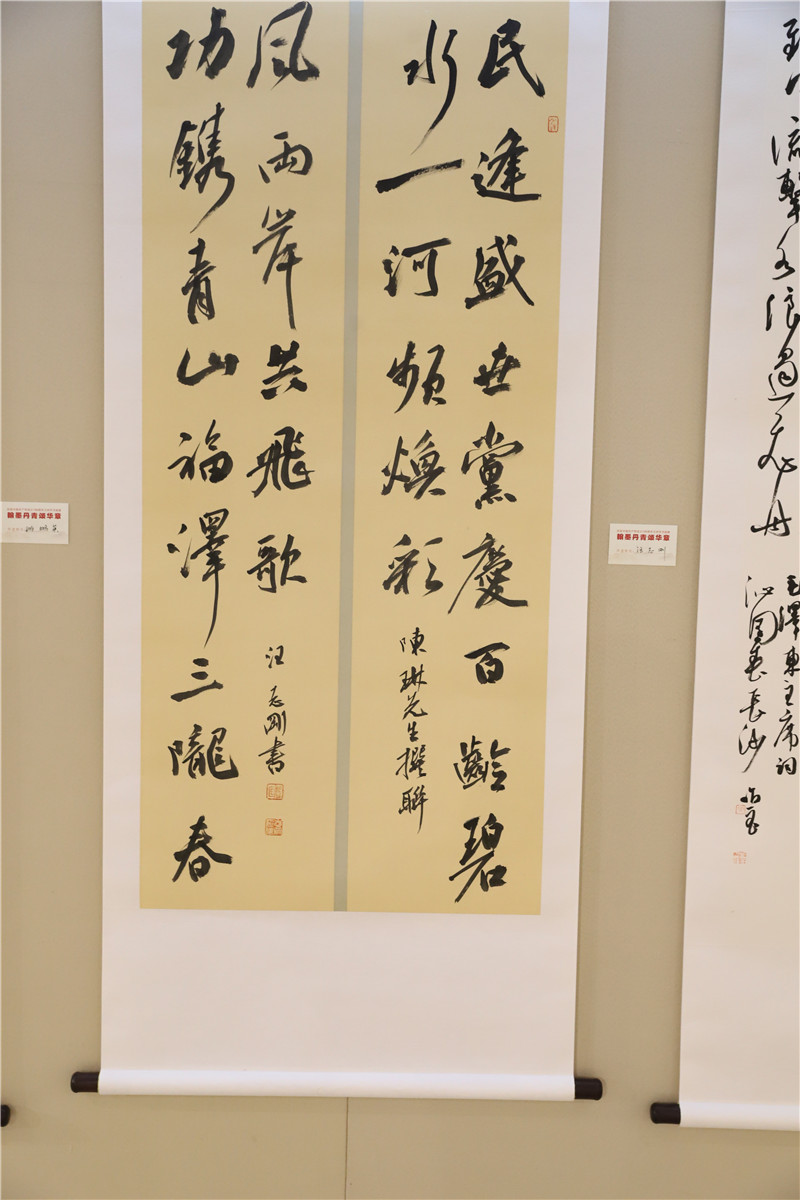 民逢盛世黨慶百齡碧
水一河頻煥彩
陳琳先生撰聯
功鐫青山福澤三隴春
風兩岸共飛歌
汪志剛書
到中流擊水浪遏飛舟
毛澤東主席詞
沁園春長沙
翰墨丹青颂华章
翰墨丹青颂华章